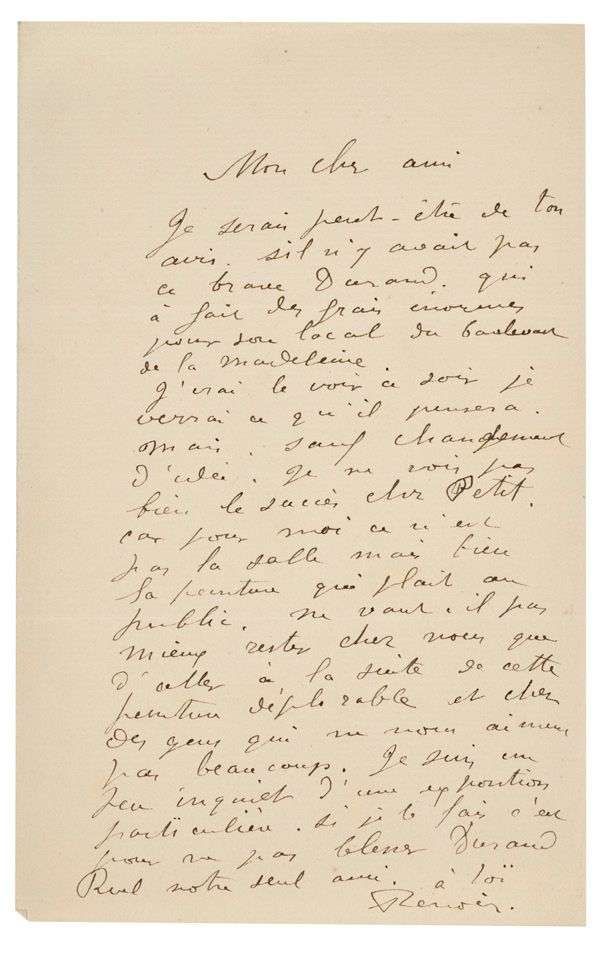 Mon cher ami
Je serais peut-être de ton
avis. s'il n'y avait pas
ce brave Durand. qui
à fait des frais énormes
pour son local du boulevart
de la madeleine
J'irai le voir ce soir je
verrai ce qu'il pensera.
mais. sauf changement
d'idée. je ne vois pas
bien le succès chez Petit.
car pour moi ce n'est
pas la salle mais bien
la peinture qui plait au
public. ne vaut-il pas
mieux rester chez nous que
d'aller à la suite de cette
peinture déplorable et chez
des gens qui ne nous aiment
pas beaucoup. Je suis un
peu inquiet d'une exposition
particulière. si je le fais c'est
pour ne pas blesser Durand
Ruel notre seul ami. à toï
Renoir.